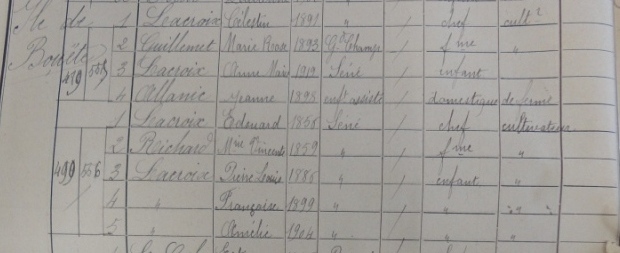 Ile de 1 Lacroix Célestin 1891 " / chef cultr
Bouëte 2 Guillemet Marie Rose 1893 Gd Champ / fme "
419 555 3 Lacroix Anne Marie 1919 Séné / enfant
4 Allanic Jeanne 1895 enft assisté / domestique de ferme
1 Lacroix Edouard 1856 Séné / chef cultivateur
2 Reichard Mie Vincente 1859 " / fme "
499 556 3 Lacroix Louise 1886 " / enfant "
4 " Françoise 1899 " / " " "
5 " Amélie 1904 " / " "